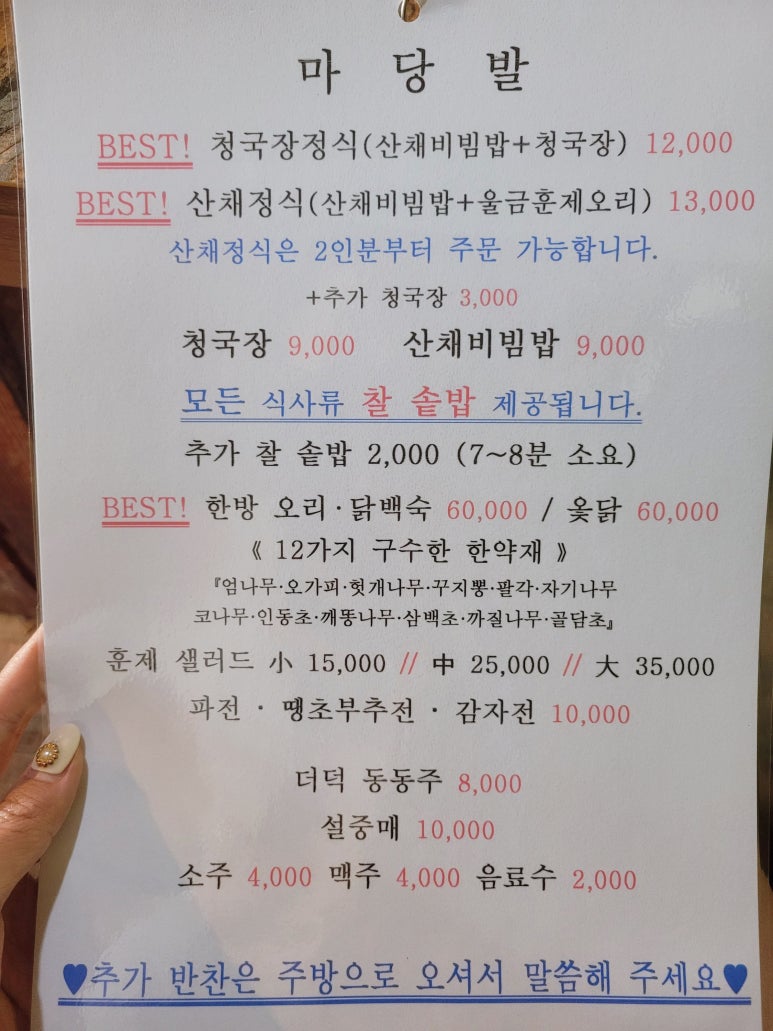 마 당 발
BEST! 청국장정식(산채비빔밥+청국장) 12,000
BEST! 산채정식(산채비빔밥+울금훈제오리) 13,000
산채정식은 2인분부터 주문 가능합니다.
+추가 청국장 3,000
청국장 9,000 산채비빔밥 9,000
모든 식사류 찰 솥밥 제공됩니다.
추가 찰 솥밥 2,000 (7~8분 소요)
BEST! 한방 오리·닭백숙 60,000 / 옻닭 60,000
《 12가지 구수한 한약재 》
『엄나무·오가피·헛개나무·꾸지뽕·팔각·자기나무
코나무·인동초·깨똥나무·삼백초·까질나무·골담초』
훈제 샐러드 小 15,000 // 中 25,000 // 大 35,000
파전 · 땡초부추전 · 감자전 10,000
더덕 동동주 8,000
설중매 10,000
소주 4,000 맥주 4,000 음료수 2,000
♥추가 반찬은 주방으로 오셔서 말씀해 주세요♥